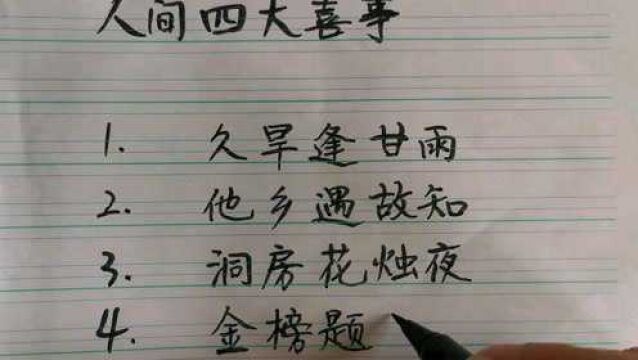 人间四大喜事
1. 久旱逢甘雨
2. 他乡遇故知
3. 洞房花烛夜
4. 金榜题